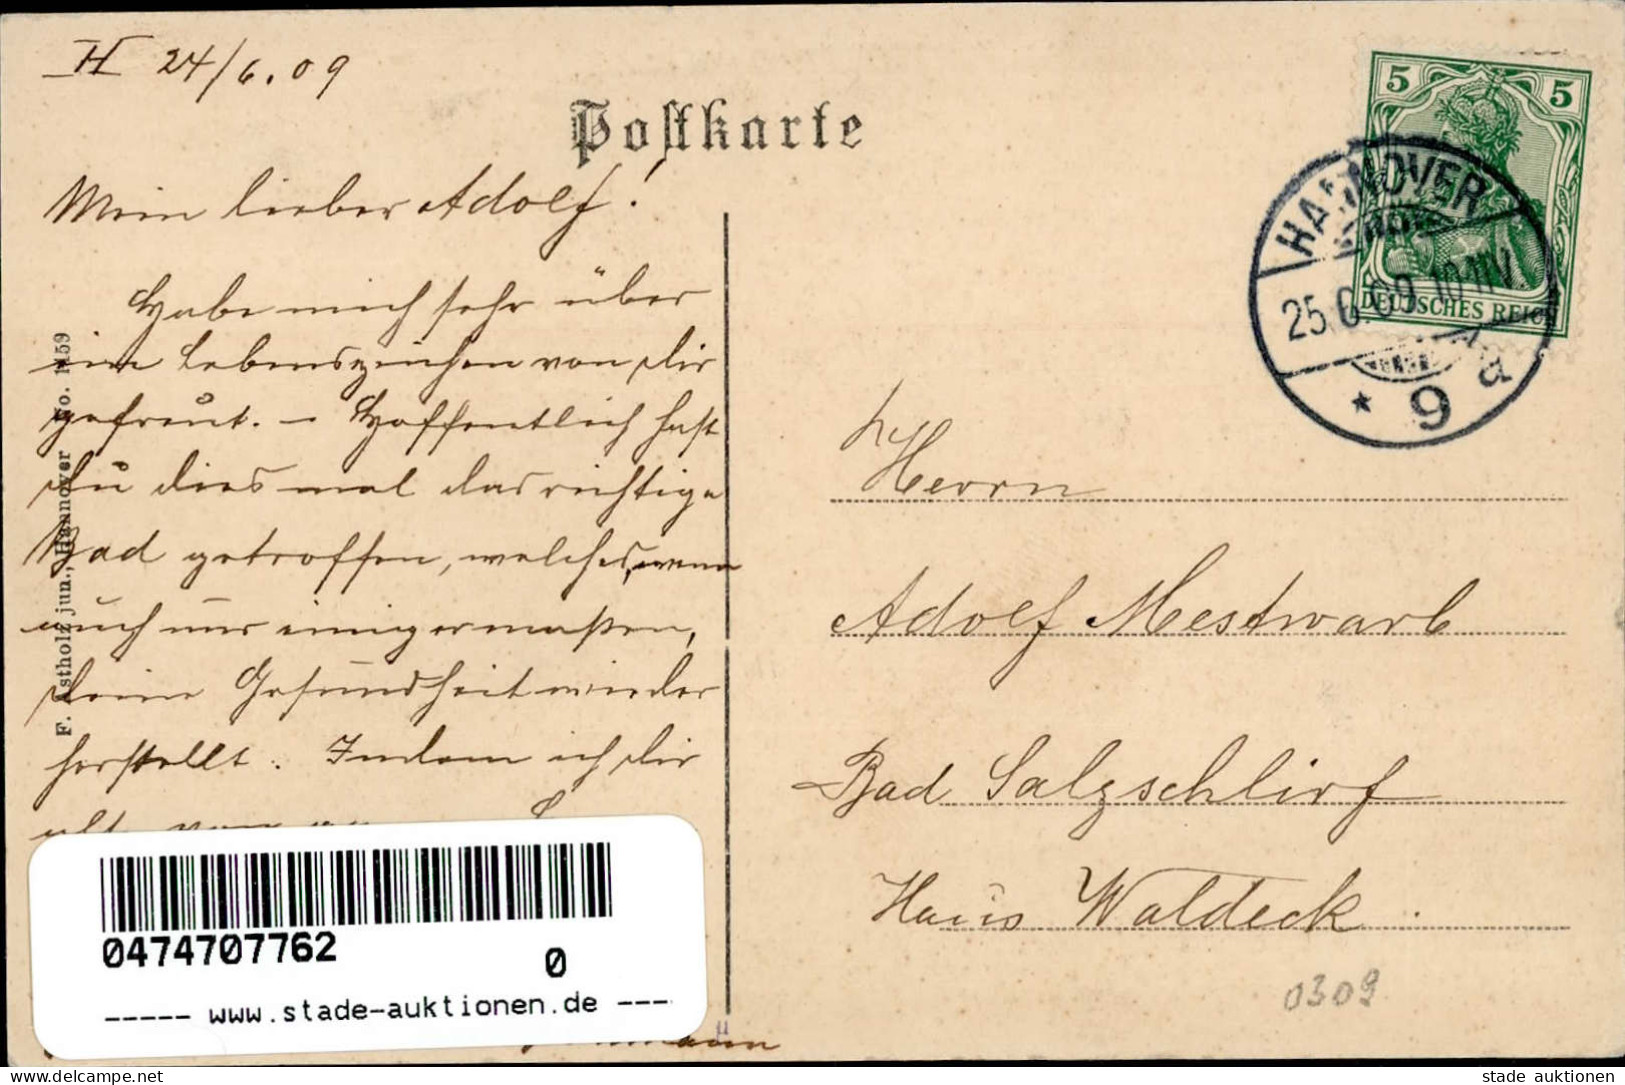 H 24/6.09
Postkarte
Mein lieber Adolf!
Habe mich sehr über
ein Lebenszeichen von dir
gefreut. – Hoffentlich hast
Du dies mal das richtige
Bad getroffen, welches, wenn
auch nur einigermaßen,
deine Gesundheit wieder
herstellt. Indem ich dir
F. Astholz jun., Hannover No. 1159
5 5
DEUTSCHES REICH
HANNOVER
25.6.09. 10-11V
* 9 a
Herrn
Adolf Mestwarb
Bad Salzschlirf
Haus Waldeck.
0309
0474707762
0
----- www.stade-auktionen.de ----
stade auktionen